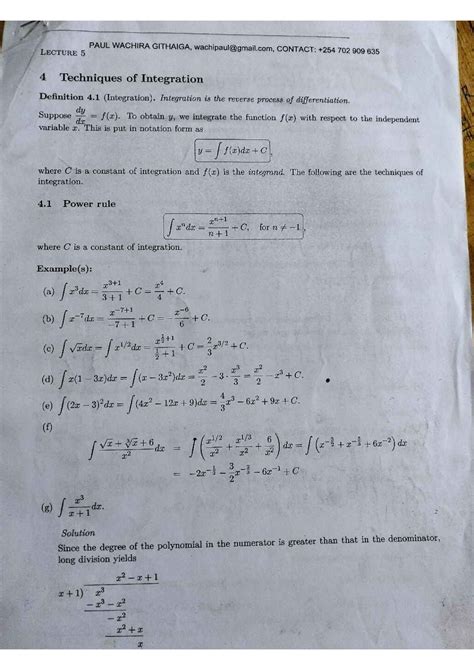 PAUL WACHIRA GITHAIGA, wachipaul@gmail.com, CONTACT: +254 702 909 635
LECTURE 5
4 Techniques of Integration
Definition 4.1 (Integration). Integration is the reverse process of differentiation.
Suppose dy/dx = f(x). To obtain y, we integrate the function f(x) with respect to the independent
variable x. This is put in notation form as
y = ∫ f(x)dx + C,
where C is a constant of integration and f(x) is the integrand. The following are the techniques of
integration.
4.1 Power rule
∫ xⁿdx = xⁿ⁺¹/(n + 1) + C, for n ≠ −1,
where C is a constant of integration.
Example(s):
(a) ∫ x³dx = x³⁺¹/(3 + 1) + C = x⁴/4 + C.
(b) ∫ x⁻⁷dx = x⁻⁷⁺¹/(−7 + 1) + C = −x⁻⁶/6 + C.
(c) ∫ √xdx = ∫ x^{1/2}dx = x^{1/2+1}/(1/2 + 1) + C = 2/3 x^{3/2} + C.
(d) ∫ x(1 − 3x)dx = ∫(x − 3x²)dx = x²/2 − 3 · x³/3 = x²/2 − x³ + C.
(e) ∫(2x − 3)²dx = ∫(4x² − 12x + 9)dx = 4/3 x³ − 6x² + 9x + C.
(f)
∫ (√x + ∛x + 6)/x² dx = ∫ (x^{1/2}/x² + x^{1/3}/x² + 6/x²) dx = ∫(x^{−3/2} + x^{−5/3} + 6x⁻²) dx
= −2x^{−1/2} − 3/2 x^{−2/3} − 6x⁻¹ + C
(g) ∫ x³/(x + 1) dx.
Solution
Since the degree of the polynomial in the numerator is greater than that in the denominator,
long division yields
x² − x + 1
x + 1) x³
− x³ − x²
− x²
x² + x
x